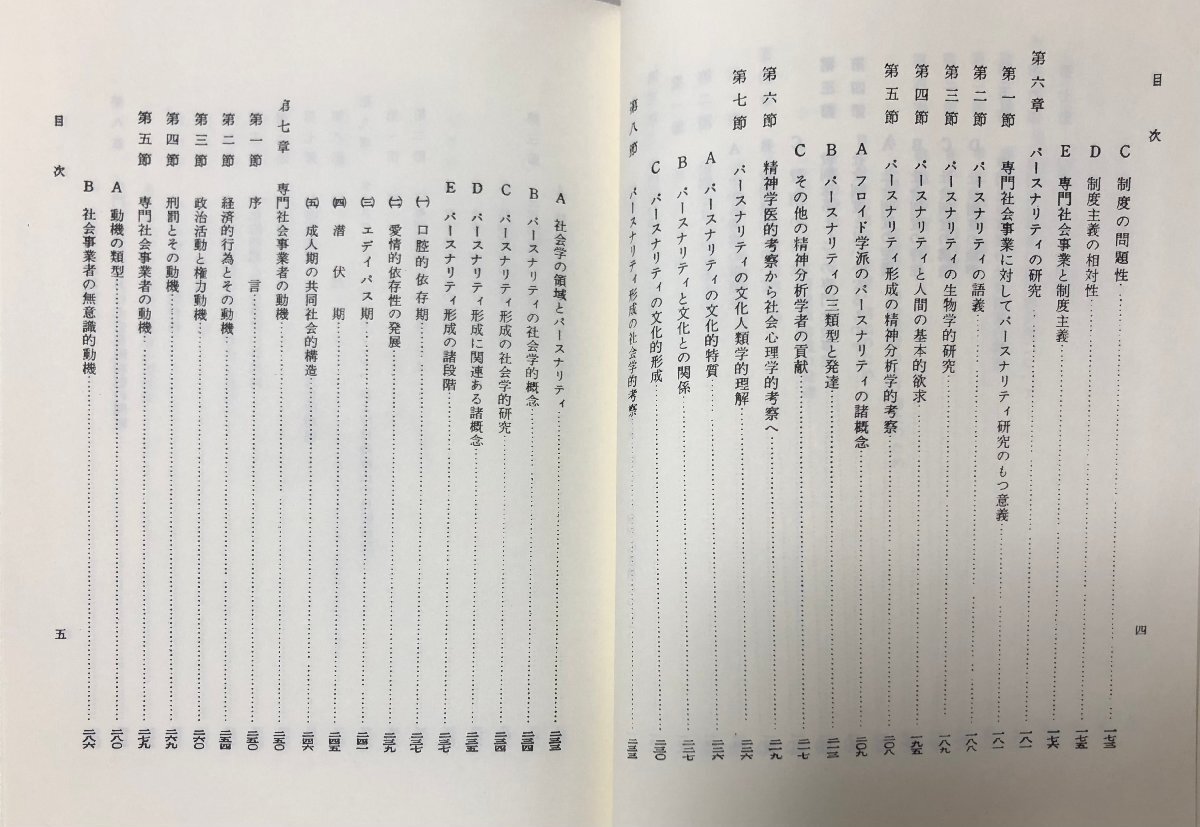 目次
四
C 制度の問題性……一七三
D 制度主義の相対性……一七五
E 専門社会事業と制度主義……一七六
第六章 パースナリティの研究……一八一
第一節 専門社会事業に対してパースナリティ研究のもつ意義……一八一
第二節 パースナリティの語義……一八八
第三節 パースナリティの生物学的研究……一八九
第四節 パースナリティと人間の基本的欲求……一九五
第五節 パースナリティ形成の精神分析学的考察……二〇八
A フロイド学派のパースナリティの諸概念……二〇九
B パースナリティの三類型と発達……二一三
C その他の精神分析学者の貢献……二一七
第六節 精神学医的考察から社会心理学的考察へ……二一九
第七節 パースナリティの文化人類学的理解……二二六
A パースナリティの文化的特質……二二六
B パースナリティと文化との関係……二二七
C パースナリティの文化的形成……二三〇
第八節 パースナリティ形成の社会学的考察……二三三
A 社会学の領域とパースナリティ……二三三
B パースナリティの社会学的概念……二三四
C パースナリティ形成の社会学的研究……二三四
D パースナリティ形成に関連ある諸概念……二三五
E パースナリティ形成の諸段階……二三七
㈠ 口腔的依存期……二三七
㈡ 愛情的依存性の発展……二三九
㈢ エディパス期……二四一
㈣ 潜伏期……二四五
㈤ 成人期の共同社会的構造……二四六
第七章 専門社会事業者の動機……二五〇
第一節 序言……二五〇
第二節 経済的行為とその動機……二五四
第三節 政治活動と権力動機……二六〇
第四節 刑罰とその動機……二六九
第五節 専門社会事業者の動機……二七九
A 動機の類型……二八〇
B 社会事業者の無意識的動機……二八六
目次
五